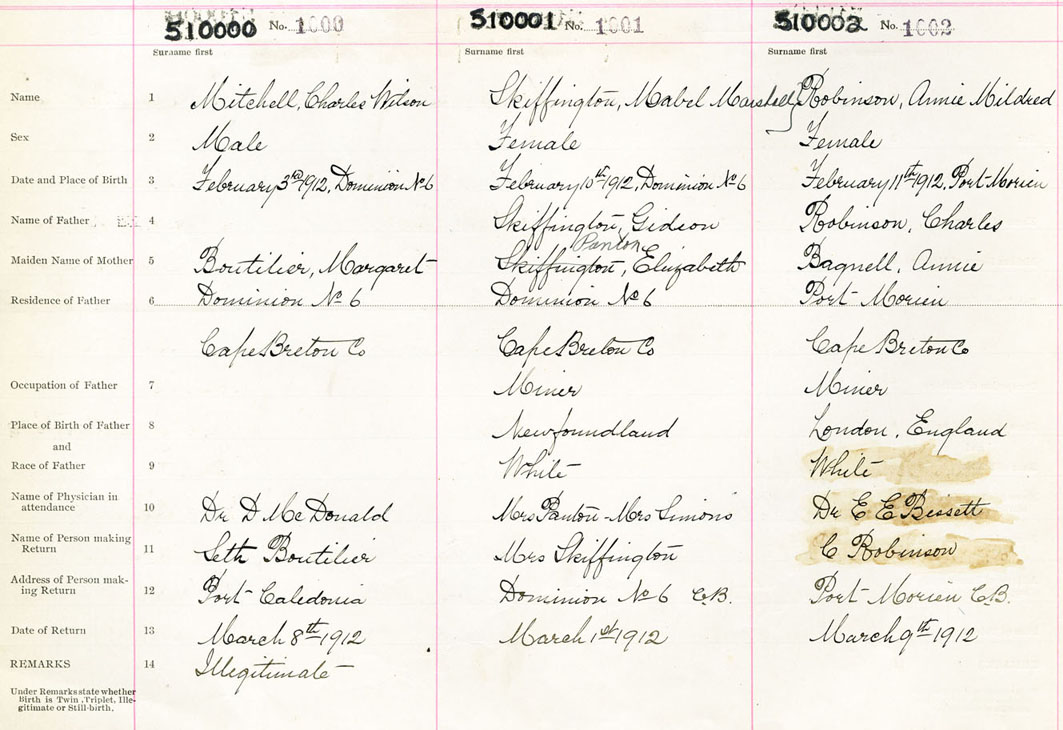 510000 No. 1000 510001 No. 1001 510002 No. 1002
Surname first Surname first Surname first
Name 1 Mitchell, Charles Wilson Skiffington, Mabel Marshall Robinson, Annie Mildred
Sex 2 Male Female Female
Date and Place of Birth 3 February 3rd 1912, Dominion No 6 February 10th 1912, Dominion No 6 February 11th 1912, Port Morien
Name of Father 4 Skiffington, Gideon Robinson, Charles
Panton
Maiden Name of Mother 5 Boutilier, Margaret Skiffington, Elizabeth Bagnell, Annie
Residence of Father 6 Dominion No 6 Dominion No 6 Port Morien
Cape Breton Co Cape Breton Co Cape Breton Co
Occupation of Father 7 Miner Miner
Place of Birth of Father 8 Newfoundland London, England
and
Race of Father 9 White White
Name of Physician in
attendance 10 Dr D McDonald Mrs Panton - Mrs Simons Dr E E Bissett
Name of Person making
Return 11 Seth Boutilier Mrs Skiffington C Robinson
Address of Person mak-
ing Return 12 Port Caledonia Dominion No 6 C.B. Port Morien C.B.
Date of Return 13 March 8th 1912 March 1st 1912 March 9th 1912
REMARKS 14 Illegitimate
Under Remarks state whether
Birth is Twin, Triplet, Ille-
gitimate or Still-birth.